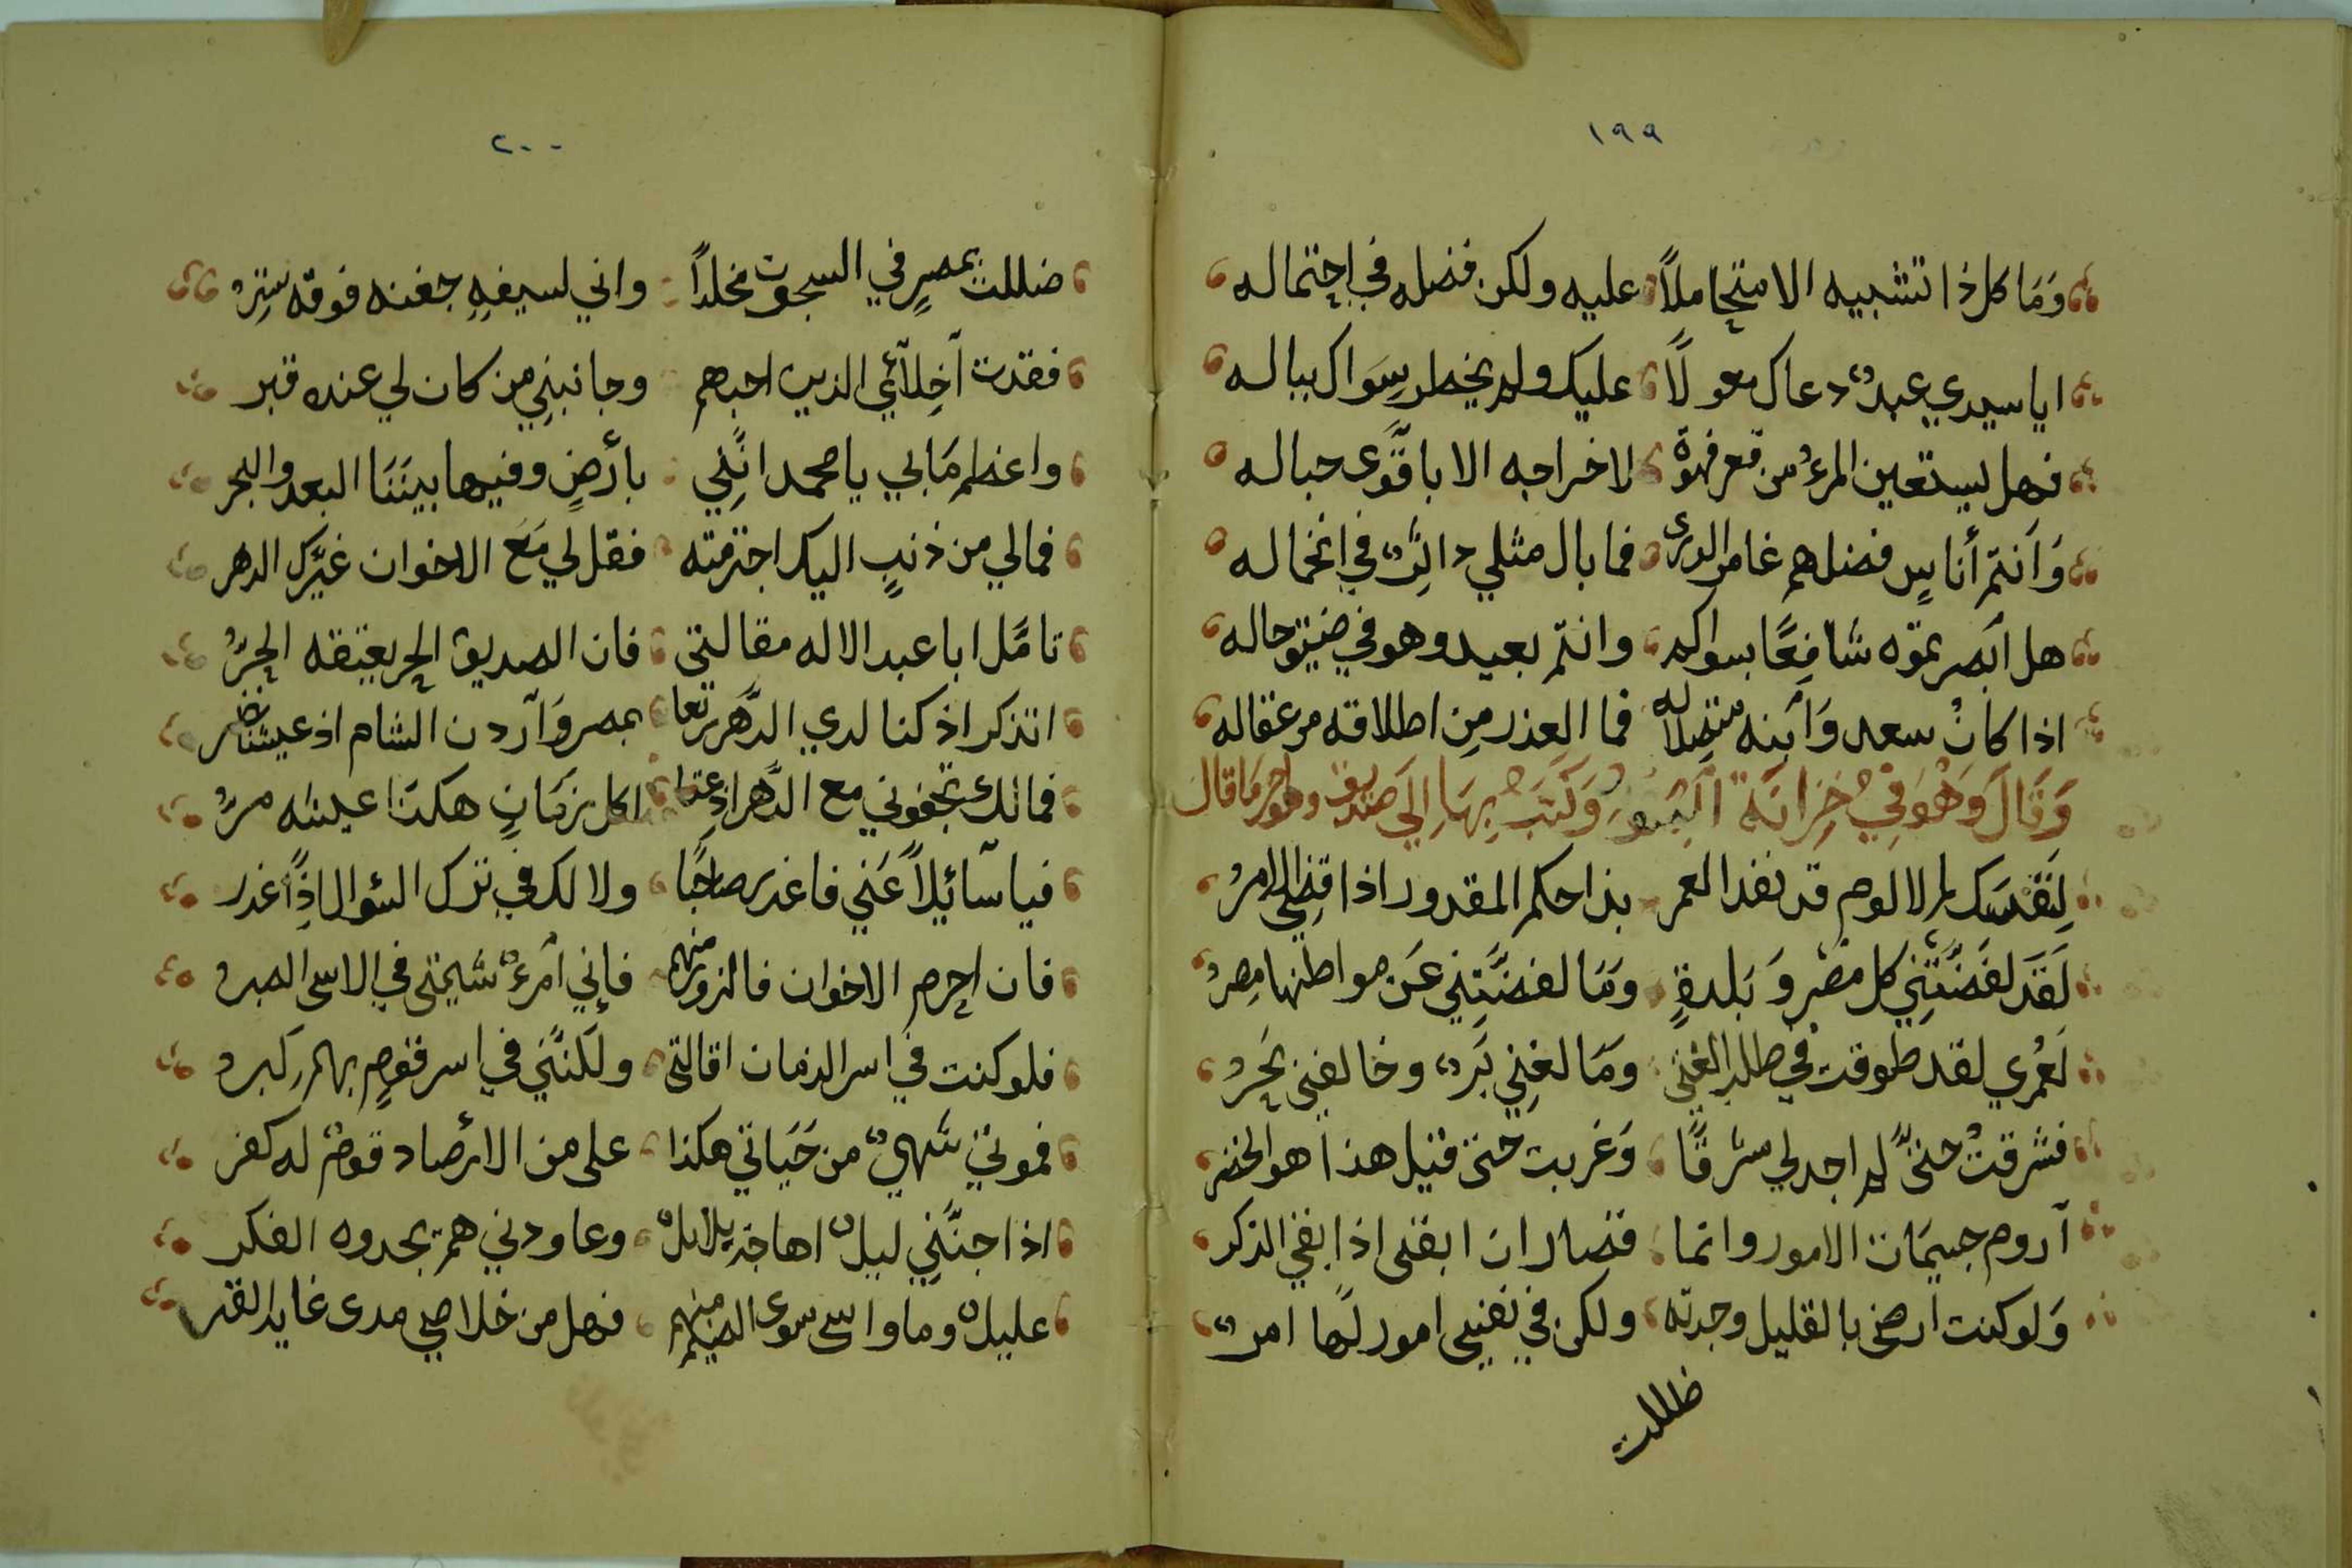 ١٩٩
وَمَا كل ذا تشبيه الا متحاملاً عليه ولكن فضله في احتماله
ايا سيدي عبدٌ دعاك معولًا عليك ولم يخطر سِوَاك بباله
فهل يستعين المرءُ من قعر فهوةٍ لاخراجه الا باقوَى حباله
وَانتم أناسٍ فضلهم غامر الورى فما بال مثلي داثرٌ في انخماله
هل ابصرتموه شافعًا بسواكم وانتم بعيد وهو في ضيق حاله
اذا كانْ سعد وَابنه متفضلاً له فما العذر مِن اطلاقه من عقاله
وَقَالَ وَهُوَ فِيْ خِزانَة وَكَتَبَ بِهَا اِلَى صَدِيق مَا قال
لِنَفْسِك لم لا لوم قد نفد العمر بذا حكم المقدور اذا قضي الامرُ
لَقَد لفضَتْنِي كل مصْر وَبَلدةٍ وَمَا لفضَتْنِي عَن مواطنها مِصرُ
لَعُمري لقد طوقت في طلب الغنى وَمَا لفني بَرٌ وخالفني بَحرُ
فشرقتُ حتى لم اجد لي مشرقًا وَغربت حتى قيل هذا هو الخضر
اروم جسيمَات الامور وانما قصار ان ابقى اذا بقي الذكر
وَلو كنت ارضى بالقليل وجدته ولكن في نفسي امور لَها امرٌ
ظللت
٢٠٠
ضللت بمصرٍ في السجون مخلدًا واني لسيفهِ جفنه فوقه سِترُ
فقدت اخِلآئي الذين احبهم وجانبنِي من كان لي عنده قبر
واعظم مَا بي يا محمد انَّنِي بأرضٍ وفيها بينَنَا البعد والبحر
فمالي من ذنبٍ اليك اجترمته فقل لي مَعَ الاخوان غيَّرك الدهر
تامَّل ابا عبد الاله مقالتي فان الصديق الحر يعتقه الحرُّ
اتذكر اذ كنا لدي الدَّهر نعا بمصر وَاردن الشام اذ عيشنا نضر
فمالك تجفوني مع الدَّهر اذ عتا اكل زمَانٍ هكذا عيشه مرُّ
فيا سآئيلاً عَني فاغدر صاحبًا ولا لك في ترك السؤال اذًا غدر
فان احرم الاخوان فالزور منهم فاِني امرءٌ شيمتي في الاسى الصبر
فلو كنت في اسر الزمان اقالتى ولَكنَّني في اسر قومٍ بهم كبر
فموتي شهيٌ من حَيَاتي هكذا على من الارصاد قومٌ له كفر
اذا جنَّنِي ليلٌ اهاجَ بلابلٌ وعاودني هم يحدوه الفكر
عليلٌ وما واسى سوى الضيم منهم فهل من خلاصي مدى غايه القبر